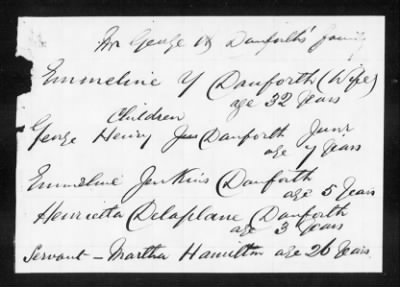 Mr George H Danforths' family
Emmeline Y Danforth (Wife)
age 32 Years
Children
George Henry Danforth Junr
age 7 Years
Emmeline Jenkins Danforth
age 5 Years
Henrietta Delaplane Danforth
age 3 Years
Servant - Martha Hamilton age 26 Years